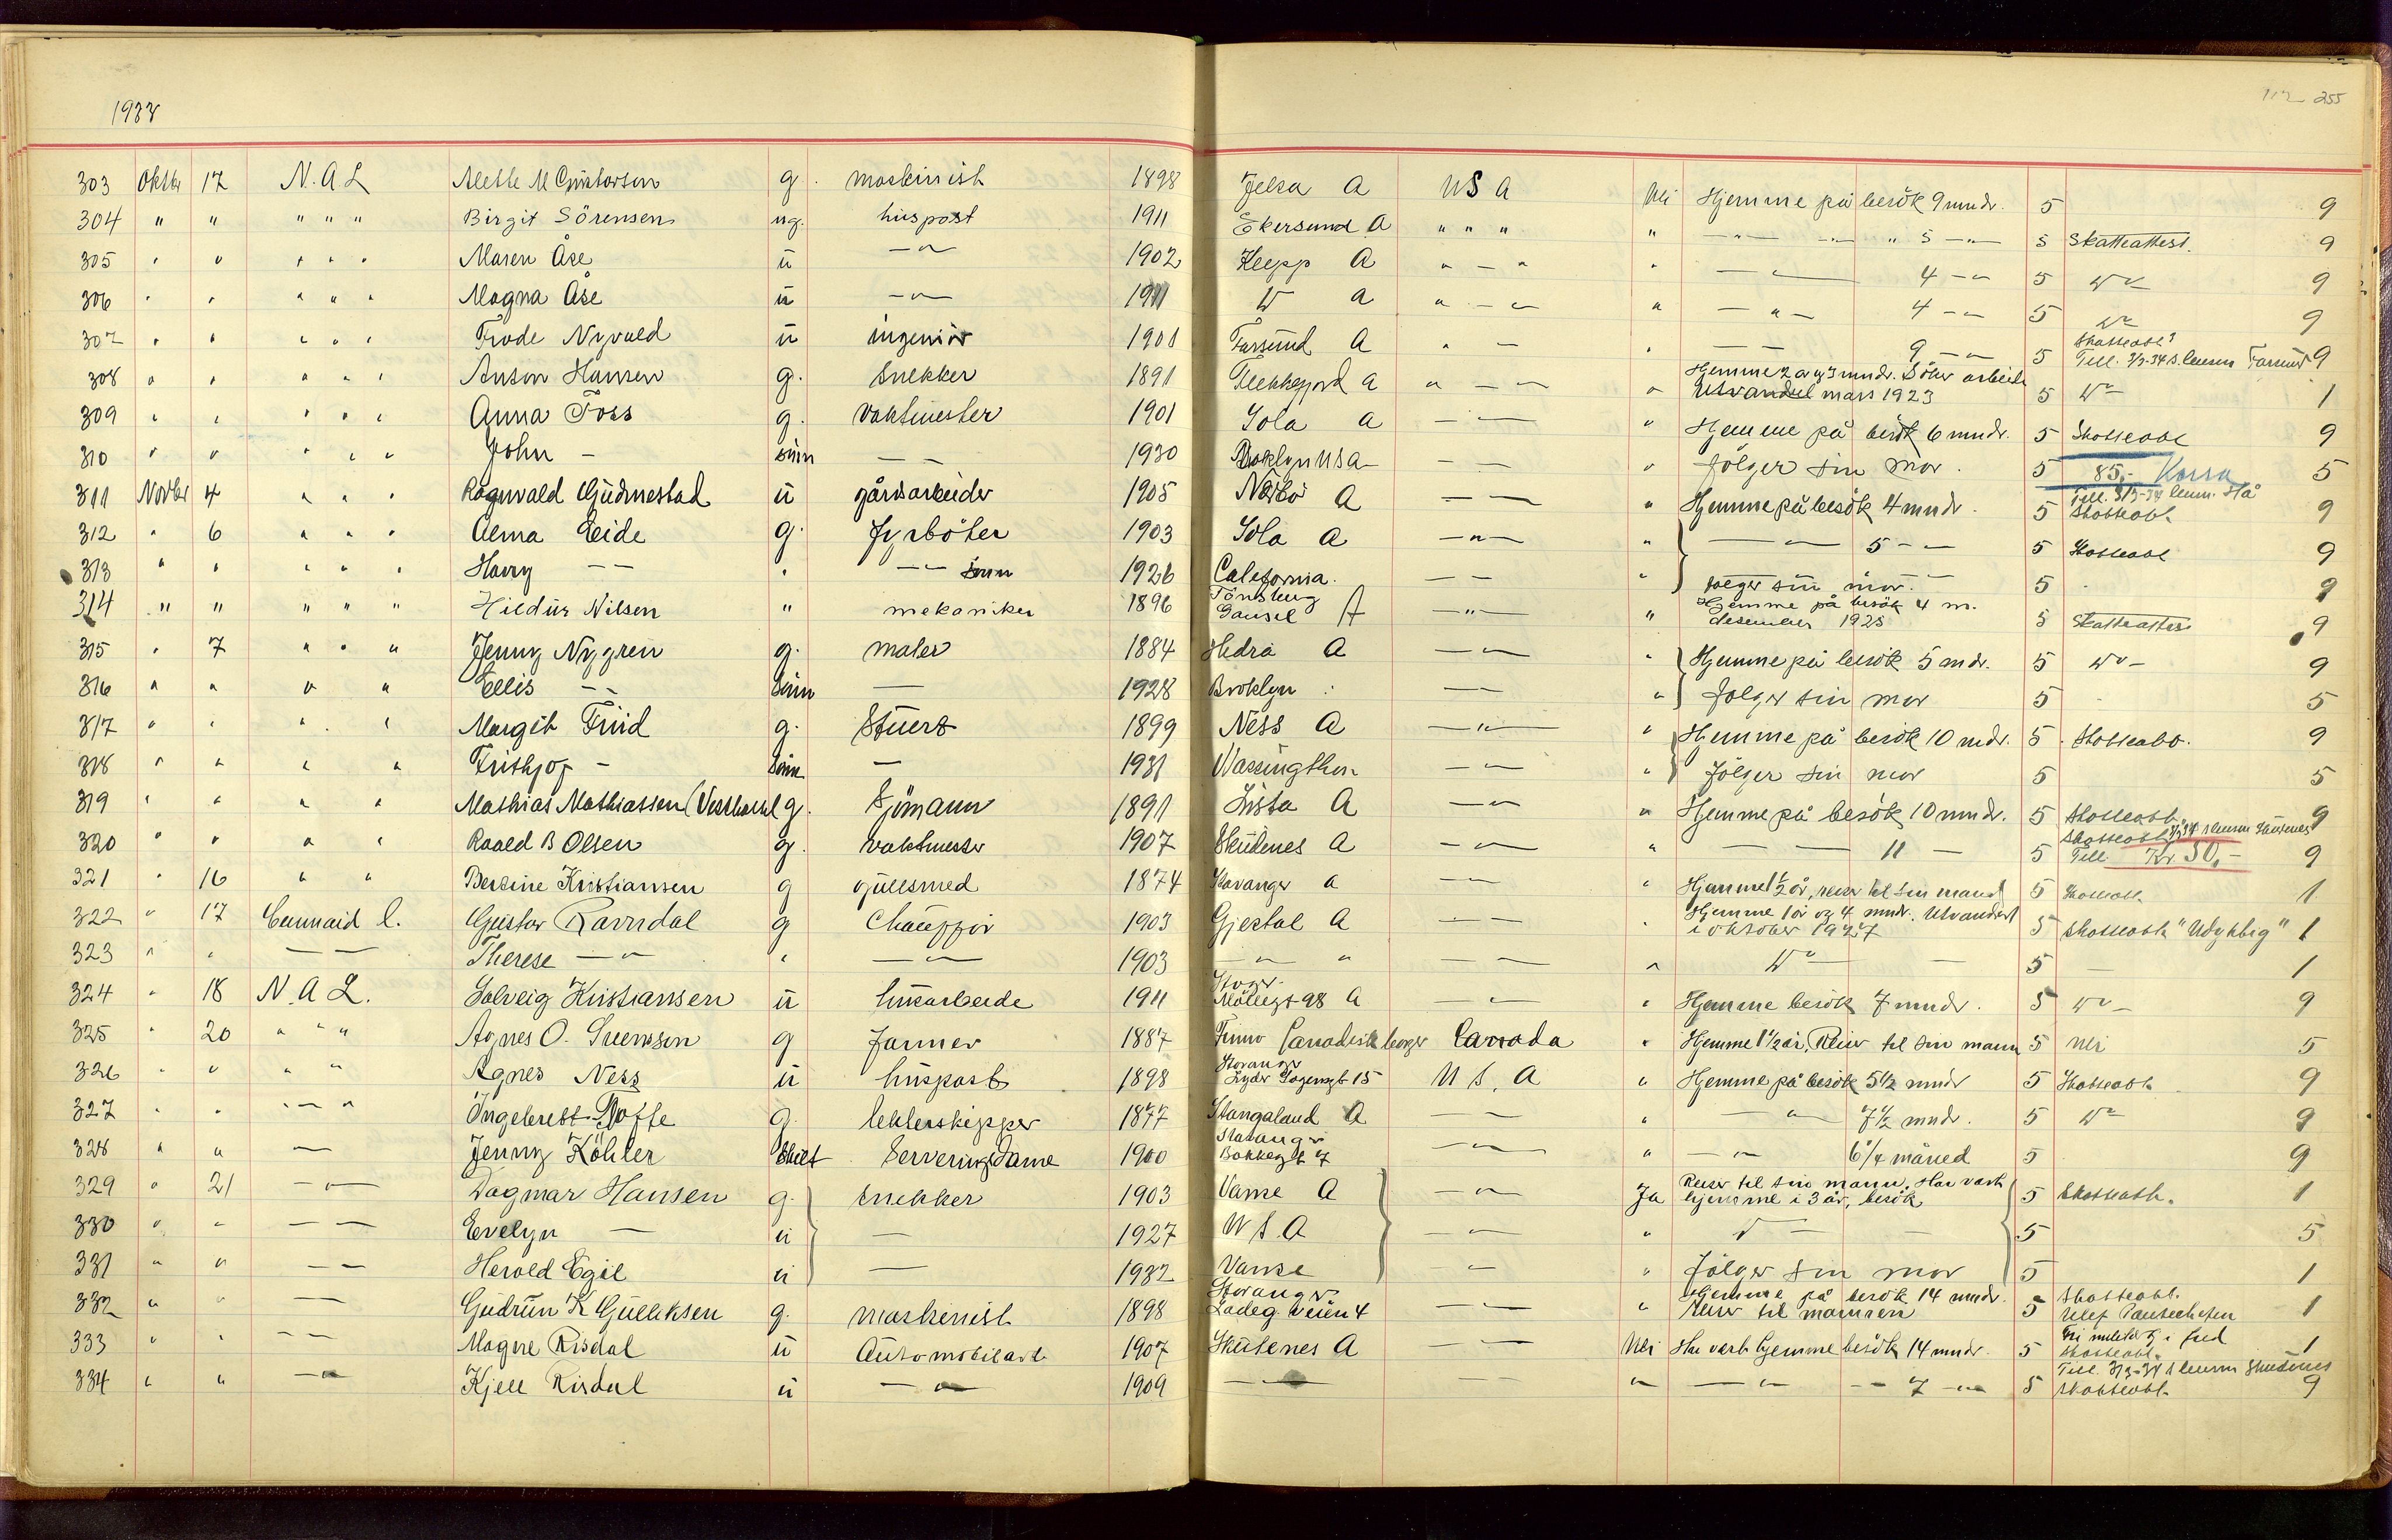 1933
255
303 Oktbr 17 N. A L Alette M Gustavsen g. maskinist 1898 Jelsa A U S A Nei Hjemme på besök 9 mndr. 5 9
304 " " " " " Birgit Sörensen ug. huspost 1911 Ekersund A " " " " —"— —"— " 5 —"— 5 Skatteattest. 9
305 " " " " " Maren Åse ü —"— 1902 Klepp A " — " " —"— 4 —"— 5 Do 9
306 " " " " " Magna Åse ü —"— 1911 Do A " — " " —"— 4 —"— 5 Do 9
307 " " " " " Frode Nyvold ü ingeniör 1901 Farsund A " — " — — 9 —"— 5 Skatteatt. Till. 3/3-34 s. lensm Farsund 9
308 " " " " " Anton Hansen g. Snekker 1891 Flekkefjord A " — " " Hjemme 2 år og 3 mndr. Söker arbeide
Utvandret mars 1923 5 Do 1
309 " " " " " Anna Foss g. Vaktmester 1901 Sola A — — " Hjemme på besök 6 mndr. 5 Skatteatt 9
310 " " " " " John — sönn — — 1930 Brooklyn USA — — " Fölger sin mor. 5 85,- Kassa 5
311 Novbr 4 " " " Ragnvald Gudmestad ü gårdsarbeider 1905 Nærbö A — — " Hjemme på besök 4 mndr. 5 Till. 3/3-34 lensm. Hå Skatteatt. 9
312 " 6 " " " Alma Eide g. Fyrböter 1903 Sola A —"— " — — 5 — — 5 Skatteatt 9
313 " " " " " Harry — — " — — sönn 1926 California. — — " Fölger sin mor. 5 9
314 " " " " " Hildur Nilsen " mekaniker 1896 Tönsberg
Gausel A —"— " Hjemme på besök 4 m.
desember 1928 5 Skatteattest 9
315 " 7 " " " Jenny Nygren g. maler 1884 Hidra A —"— " Hjemme på besök 5 mdr. 5 Do 9
316 " " " " Ellis — — Sönn — 1928 Broklyn — — " Fölger sin mor 5 5
317 " " " " Margit Fuid g. Stuert 1899 Ness A —"— " Hjemme på besök 10 mdr. 5 Skatteatt. 9
318 " " " " Frithjof — Sönn — 1931 Wassingthon — — " Fölger sin mor 5 5
319 " " " " Mathias Mathiassen (Vesthassel g. Sjömann 1891 Lista A —"— " Hjemme på besök 10 mndr. 5 Skatteatt. 9
320 " " " " Roald B Olsen g. vaktmester 1907 Skudenes A — — " — — 11 — 5 Skatteatt 3/3 34 s lensm Skudenes
Till Kr. 50,- 9
321 " 16 " " Bertine Kristiansen g gullsmed 1874 Stavanger A — — " Hjemme 1/2 år, reiser til sin mand 5 Skatteatt. 1
322 " 17 Cunnaid L. Gustav Ravndal g Chaufför 1903 Gjestal A — — " Hjemme 1 år og 4 mndr. Utvandert
i oktober 1927 5 Skatteatt. "Udyktig" 1
323 " " — — Therese —"— " —"— 1903 —"— " — — " Do — 5 — 1
324 " 18 N. A L. Solveig Kristiansen ü husarbeide 1911 Stvgr.
Möllegt 98 A — — " Hjemme besök 7 mndr. 5 Do 9
325 " 20 " " " Agnes O. Svensen g Farmer 1887 Canadisk borger Canada " Hjemme 1 1/2 år. Reiser til sin mann 5 Nei 5
326 " " " " Agnes Ness ü huspost 1898 Stavanger
Lyder Sagensgt 15 U S. A " Hjemme på besök 5 1/2 mndr 5 Skatteatt. 9
327 " " " — " Ingebrett Doffe g. lekterskipper 1877 Stangaland A — — " —"— 7 1/2 mndr. 5 Do 9
328 " " — Jenny Köhler Skilt Serveringsdame 1900 Stavanger
Bakkegt 7 —"— " —"— 6 1/4 måned 5 9
329 " 21 —"— Dagmar Hansen g. Snekker 1903 Vanse A —"— Ja Reiser til sin mann. Har vært
hjemme i 3 år, besök 5 Skatteatt. 1
330 " " — — Evelyn — ü — 1927 U S. A —"— " Do — — 5 5
331 " " — — Herold Egil ü — 1932 Vanse —"— " Fölger sin mor 5 1
332 " " — Gudrun K Gulliksen g. maskinist 1898 Stavanger
Ladeg. veien 4 — — " Hjemme på besök 14 mndr.
Reiser til mannen 5 Skatteatt. 1
333 " " — — Magne Risdal ü Automobilarb 1907 Skudenes A — — Nei Har vært hjemme besök 14 mndr. 5 Skatteatt. 1
334 " " —"— Kjell Risdal ü —"— 1909 —"— — — " —"— — 7 —"— 5 Till. 3/3-34 s lensm Skudenes
Skatteatt. 9